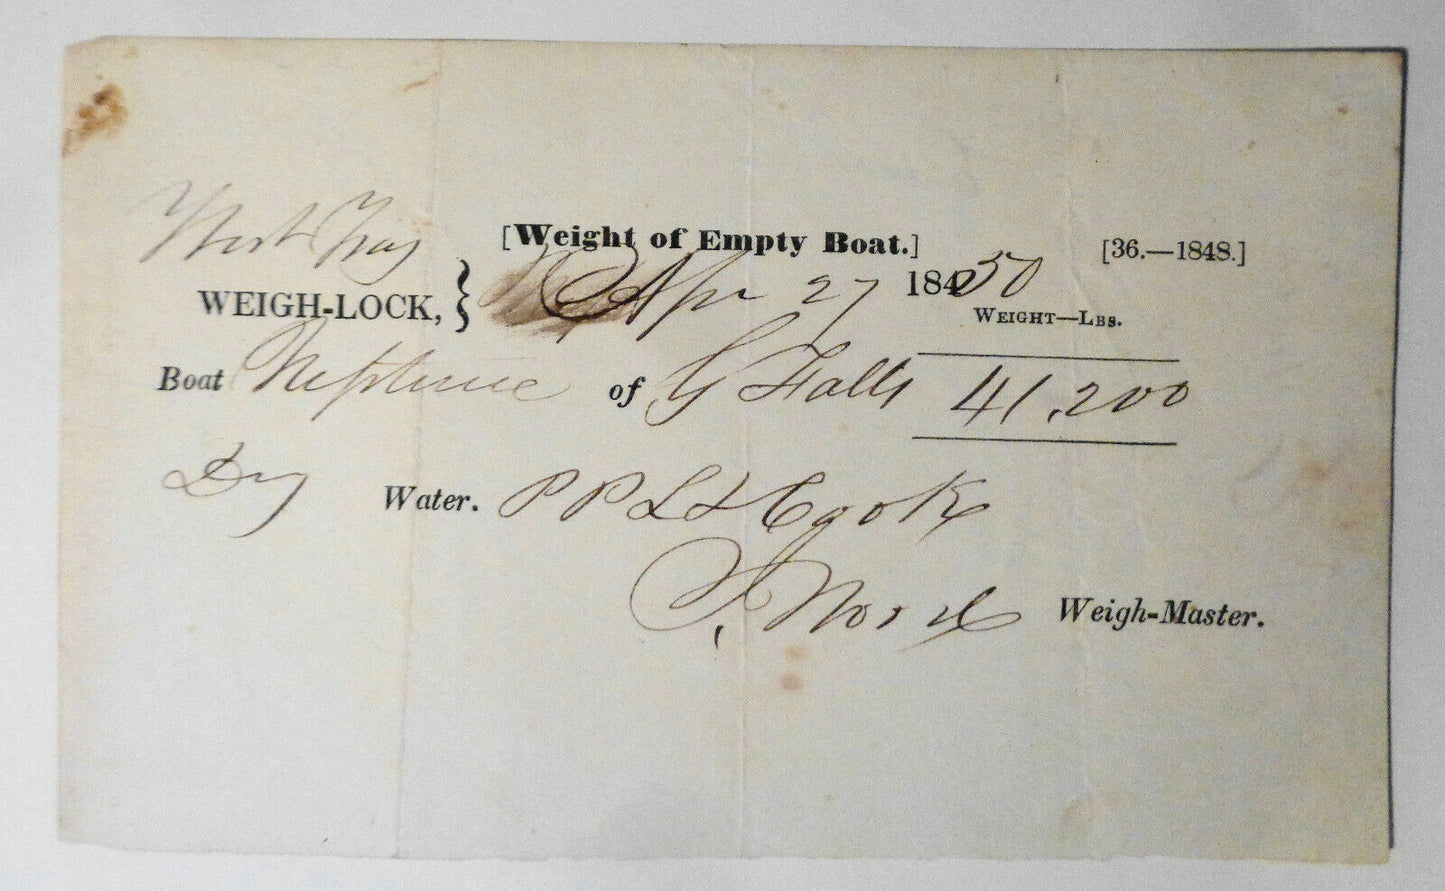 West Troy [Weight of Empty Boat.] [36.—1848.]
WEIGH-LOCK, } Apr 27 184 50
WEIGHT—LBS.
Boat Neptune of G Falls 41,200
Dry Water. P P L & H Cook
Weigh-Master.